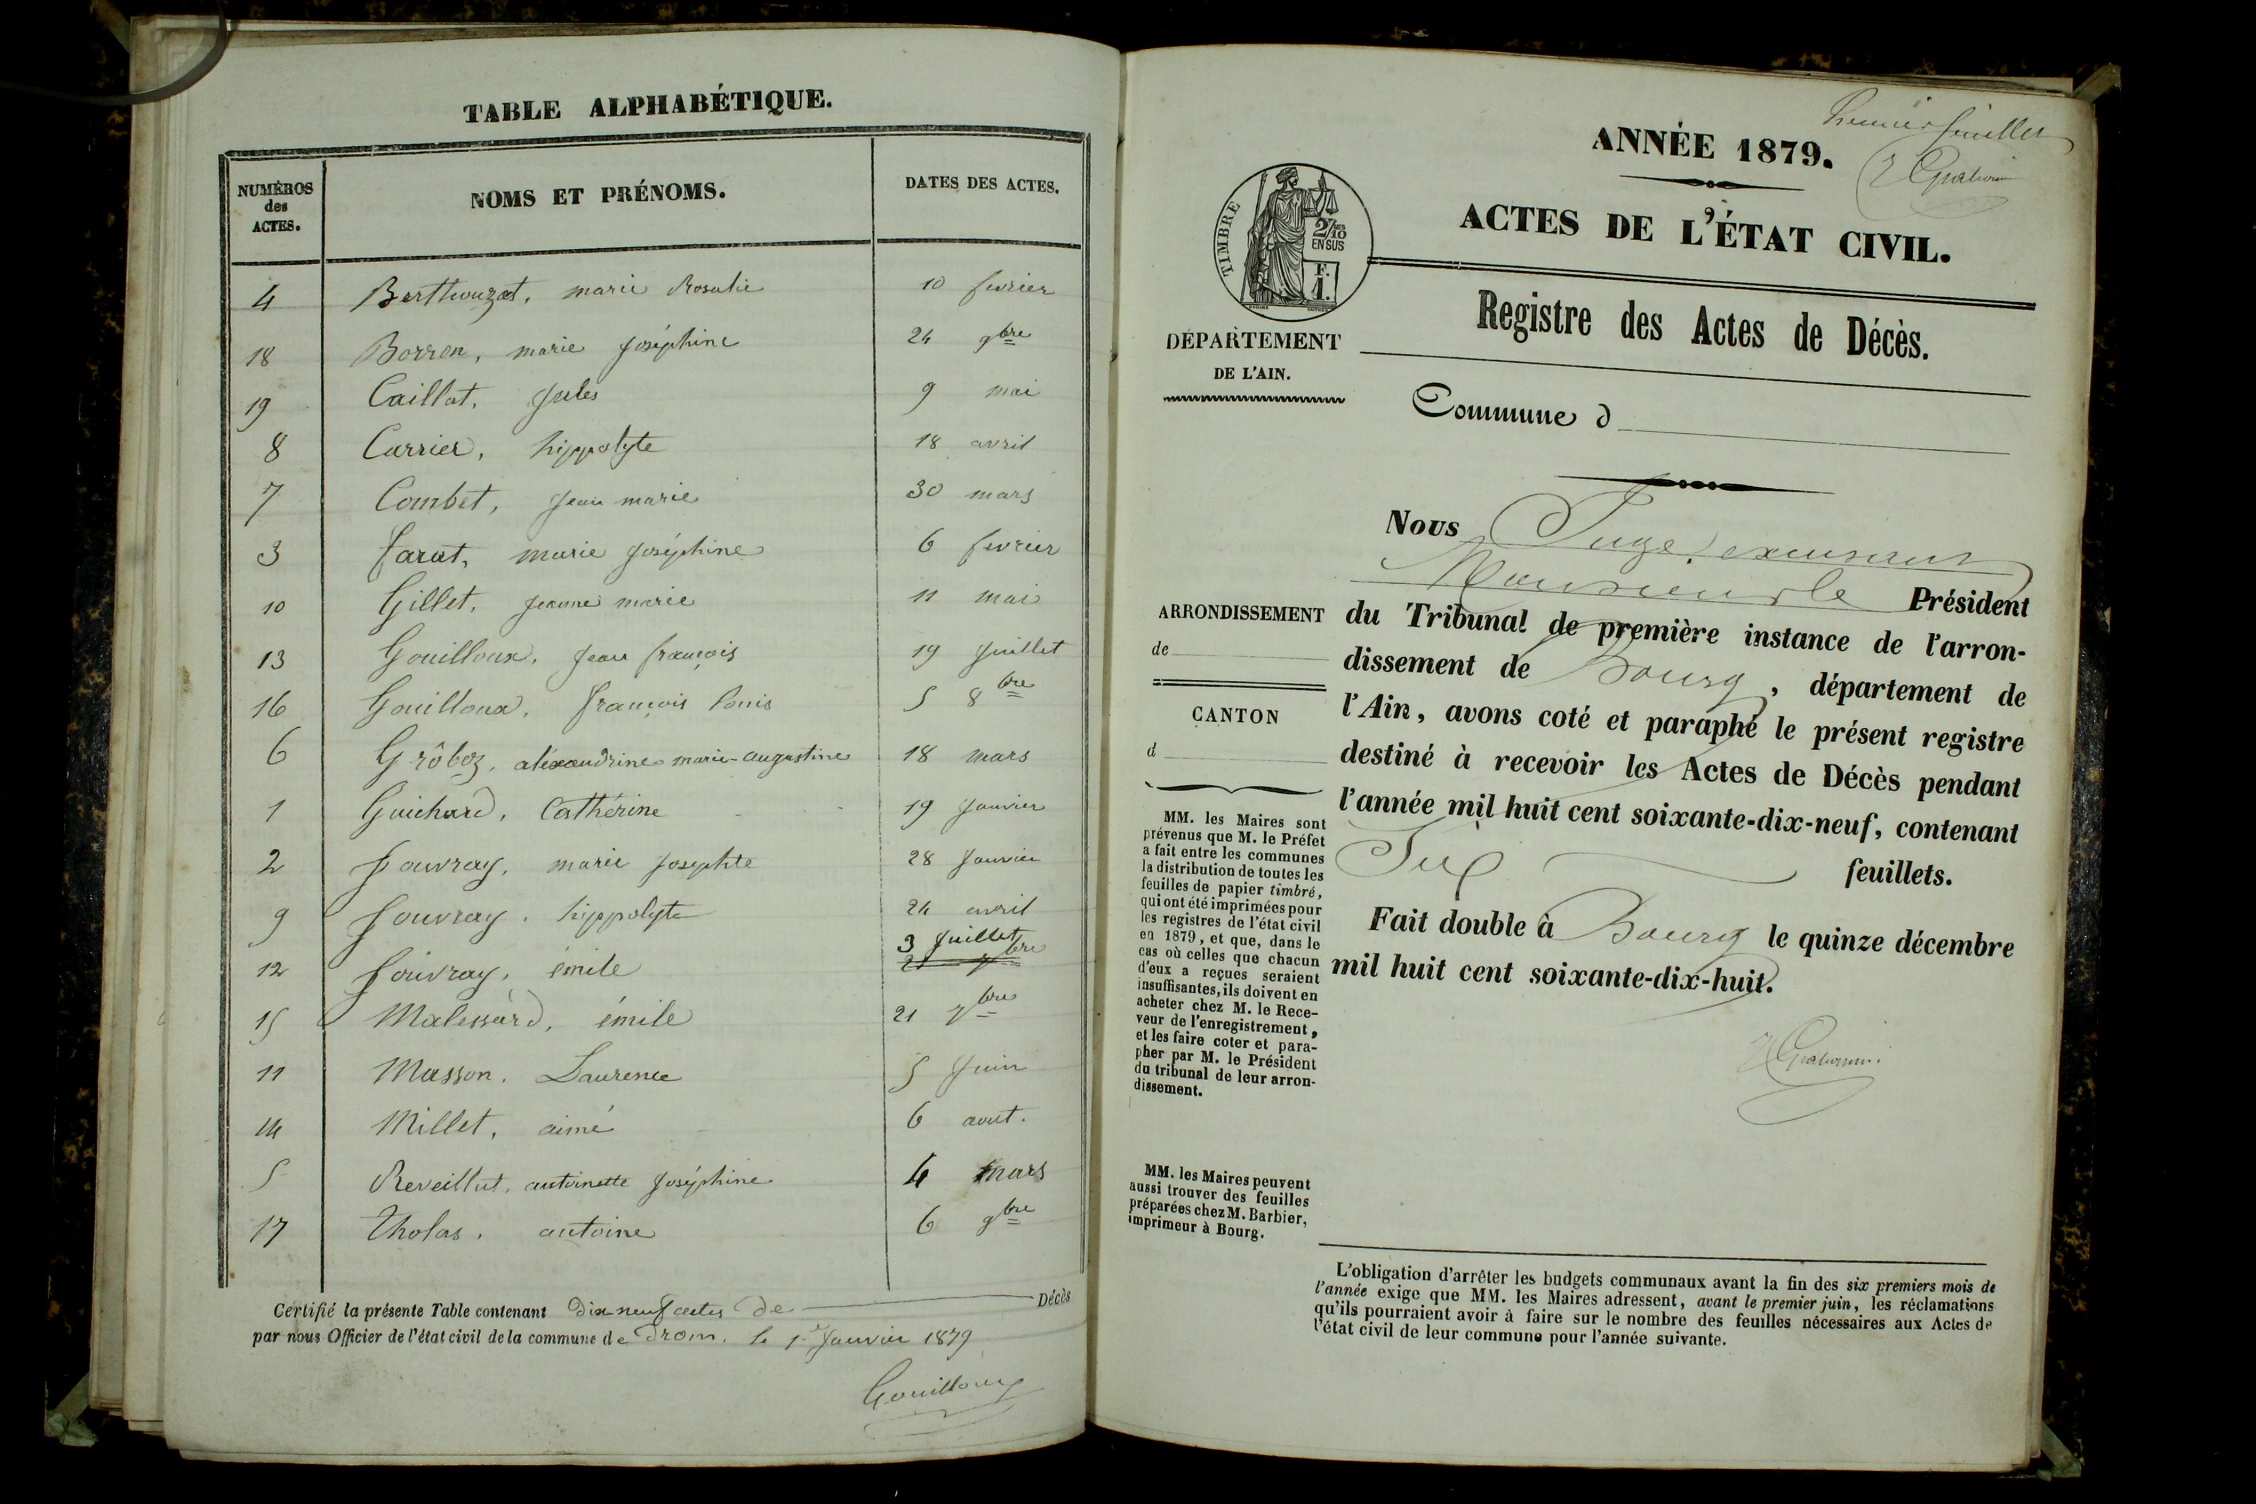 TABLE ALPHABÉTIQUE.
NUMÉROS des ACTES.
NOMS ET PRÉNOMS.
DATES DES ACTES.
4 Berthouzat, marie Rosalie 10 fevrier
18 Borron, marie Joséphine 24 9bre
19 Caillat, Jules 9 mai
8 Carrier, hippolyte 18 avril
7 Combet, Jean marie 30 mars
3 farat, marie Joséphine 6 fevrier
10 Gillet, Jeanne marie 11 mai
13 Gouilloux, Jean françois 19 Juillet
16 Gouilloux, françois Louis 5 8bre
6 Grôboz, aléxandrine marie-augustine 18 mars
1 Guichard, Cathérine 19 Janvier
2 Jouvray, marie Josephte 28 Janvier
9 Jouvray, hippolyte 24 avril
12 Jouvray, émile 3 Juillet
15 Malessard, émile 21 7bre
11 Masson, Laurence 5 Juin
14 Millet, aimé 6 aout.
5 Reveillut, antoinette Joséphine 4 mars
17 Tholas, antoine 6 9bre
Certifié la présente Table contenant dix neuf actes de Décès
par nous Officier de l'état civil de la commune de Drom, le 1er Janvier 1879
Gouilloux
Premier feuillet
ANNÉE 1879.
ACTES DE L'ÉTAT CIVIL.
TIMBRE
2/10 EN SUS
F. 1.
DÉPARTEMENT
DE L'AIN.
Registre des Actes de Décès.
Commune d
Nous Juge, excusant
Monsieur le Président
du Tribunal de première instance de l'arron-
dissement de Bourg, département de
l'Ain, avons coté et paraphé le présent registre
destiné à recevoir les Actes de Décès pendant
l'année mil huit cent soixante-dix-neuf, contenant
Six feuillets.
Fait double à Bourg le quinze décembre
mil huit cent soixante-dix-huit.
ARRONDISSEMENT
de
CANTON
d
MM. les Maires sont
prévenus que M. le Préfet
a fait entre les communes
la distribution de toutes les
feuilles de papier timbré,
qui ont été imprimées pour
les registres de l'état civil
en 1879, et que, dans le
cas où celles que chacun
d'eux a reçues seraient
insuffisantes, ils doivent en
acheter chez M. le Rece-
veur de l'enregistrement,
et les faire coter et para-
pher par M. le Président
du tribunal de leur arron-
dissement.
MM. les Maires peuvent
aussi trouver des feuilles
préparées chez M. Barbier,
imprimeur à Bourg.
L'obligation d'arrêter les budgets communaux avant la fin des six premiers mois de
l'année exige que MM. les Maires adressent, avant le premier juin, les réclamations
qu'ils pourraient avoir à faire sur le nombre des feuilles nécessaires aux Actes de
l'état civil de leur commune pour l'année suivante.